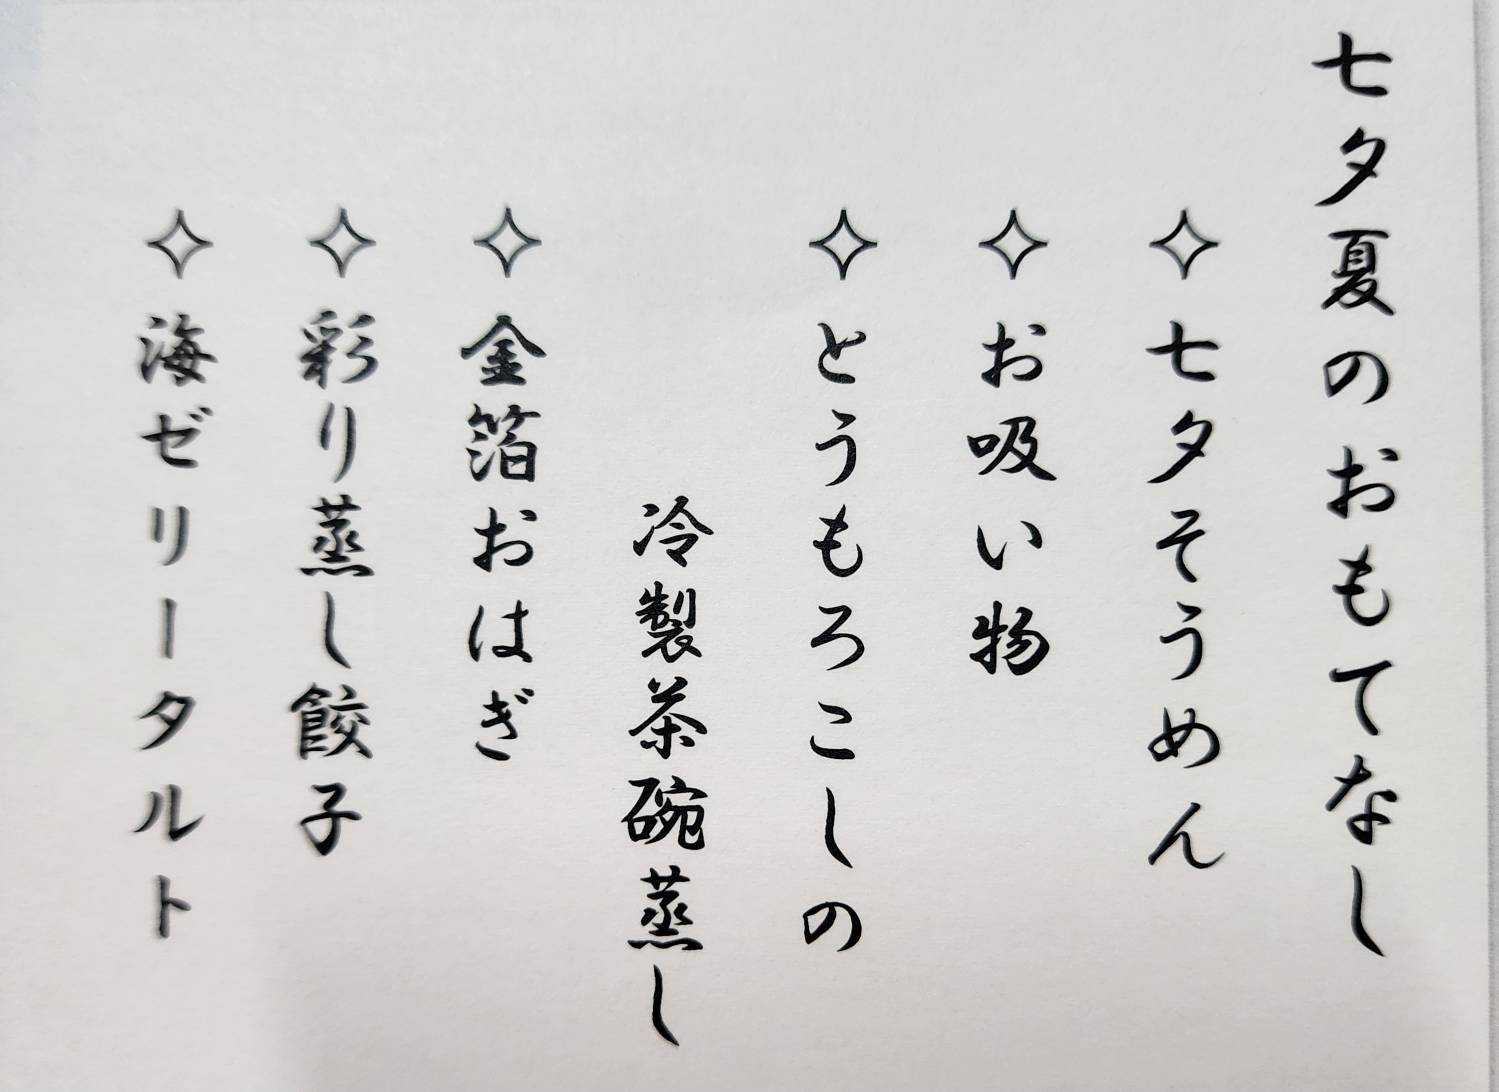 七夕夏のおもてなし
✧七夕そうめん
✧お吸い物
✧とうもろこしの
冷製茶碗蒸し
✧金箔おはぎ
✧彩り蒸し餃子
✧海ゼリータルト